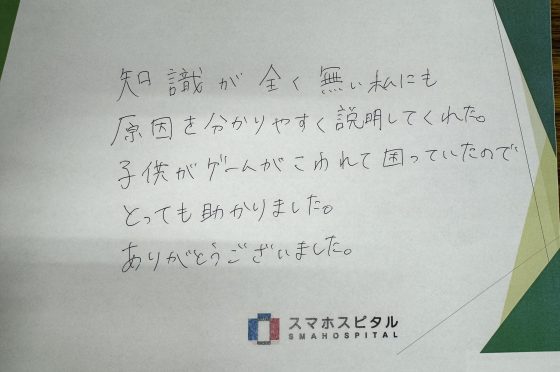 知識が全く無い私にも
原因を分かりやすく説明してくれた。
子供がゲームがこわれて困っていたので
とっても助かりました。
ありがとうございました。
スマホスピタル
SMAHOSPITAL